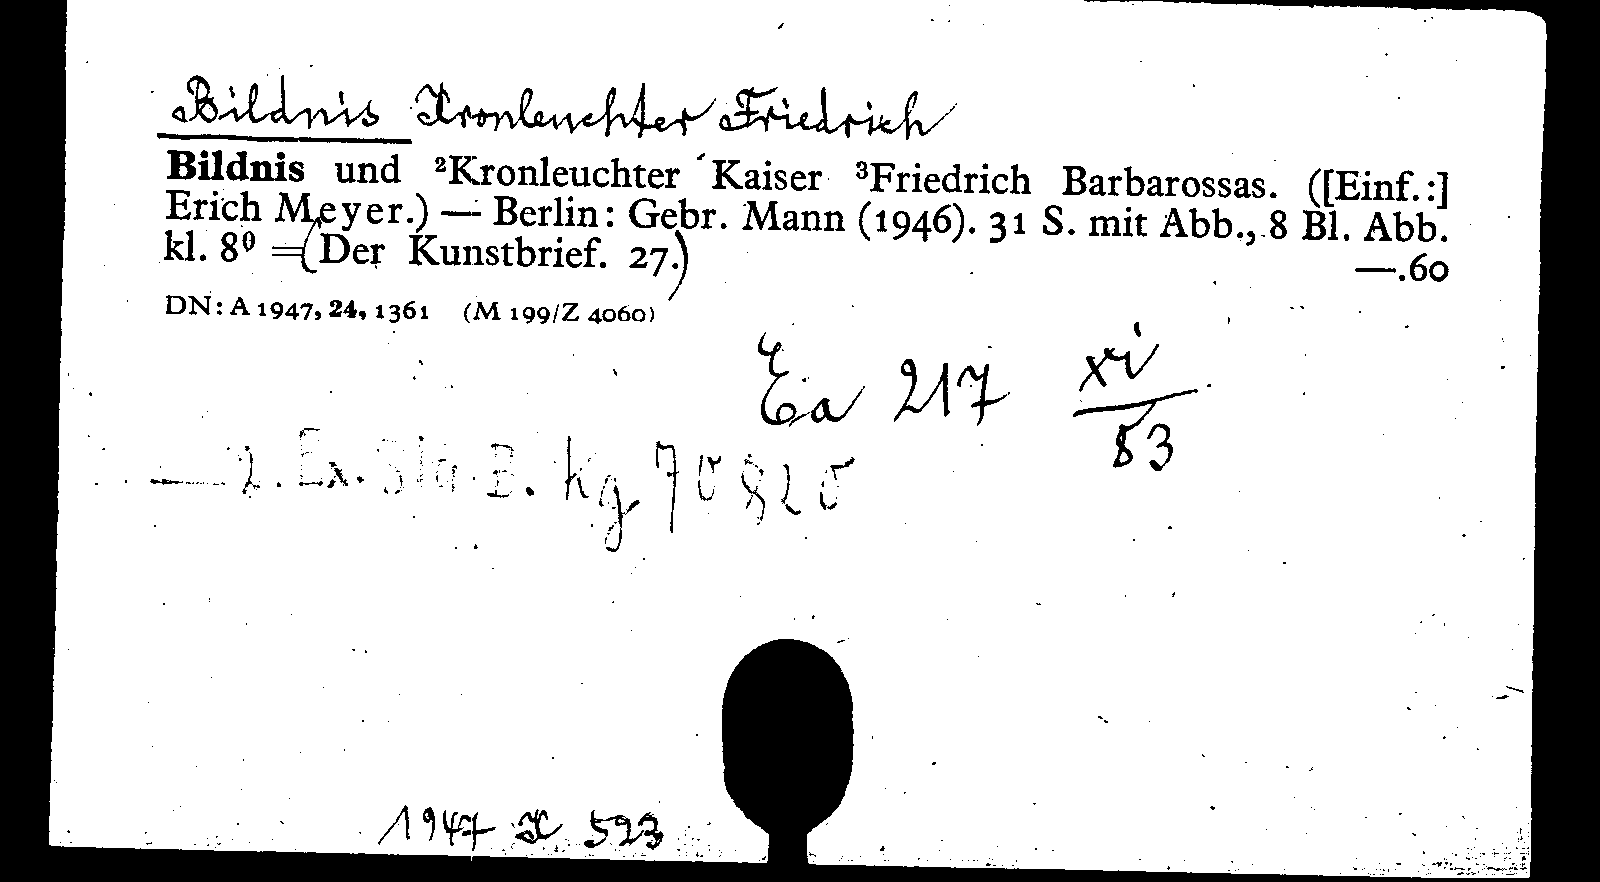 Bildnis Kronleuchter Friedrich
Bildnis und ²Kronleuchter Kaiser ³Friedrich Barbarossas. ([Einf.:]
Erich Meyer.) — Berlin: Gebr. Mann (1946). 31 S. mit Abb., 8 Bl. Abb.
kl. 8⁰ =(Der Kunstbrief. 27.)
—.60
DN: A 1947, 24, 1361 (M 199/Z 4060)
Ea 217 xi/53
— 2. Ex. B. Kg 70820
1947 K 523